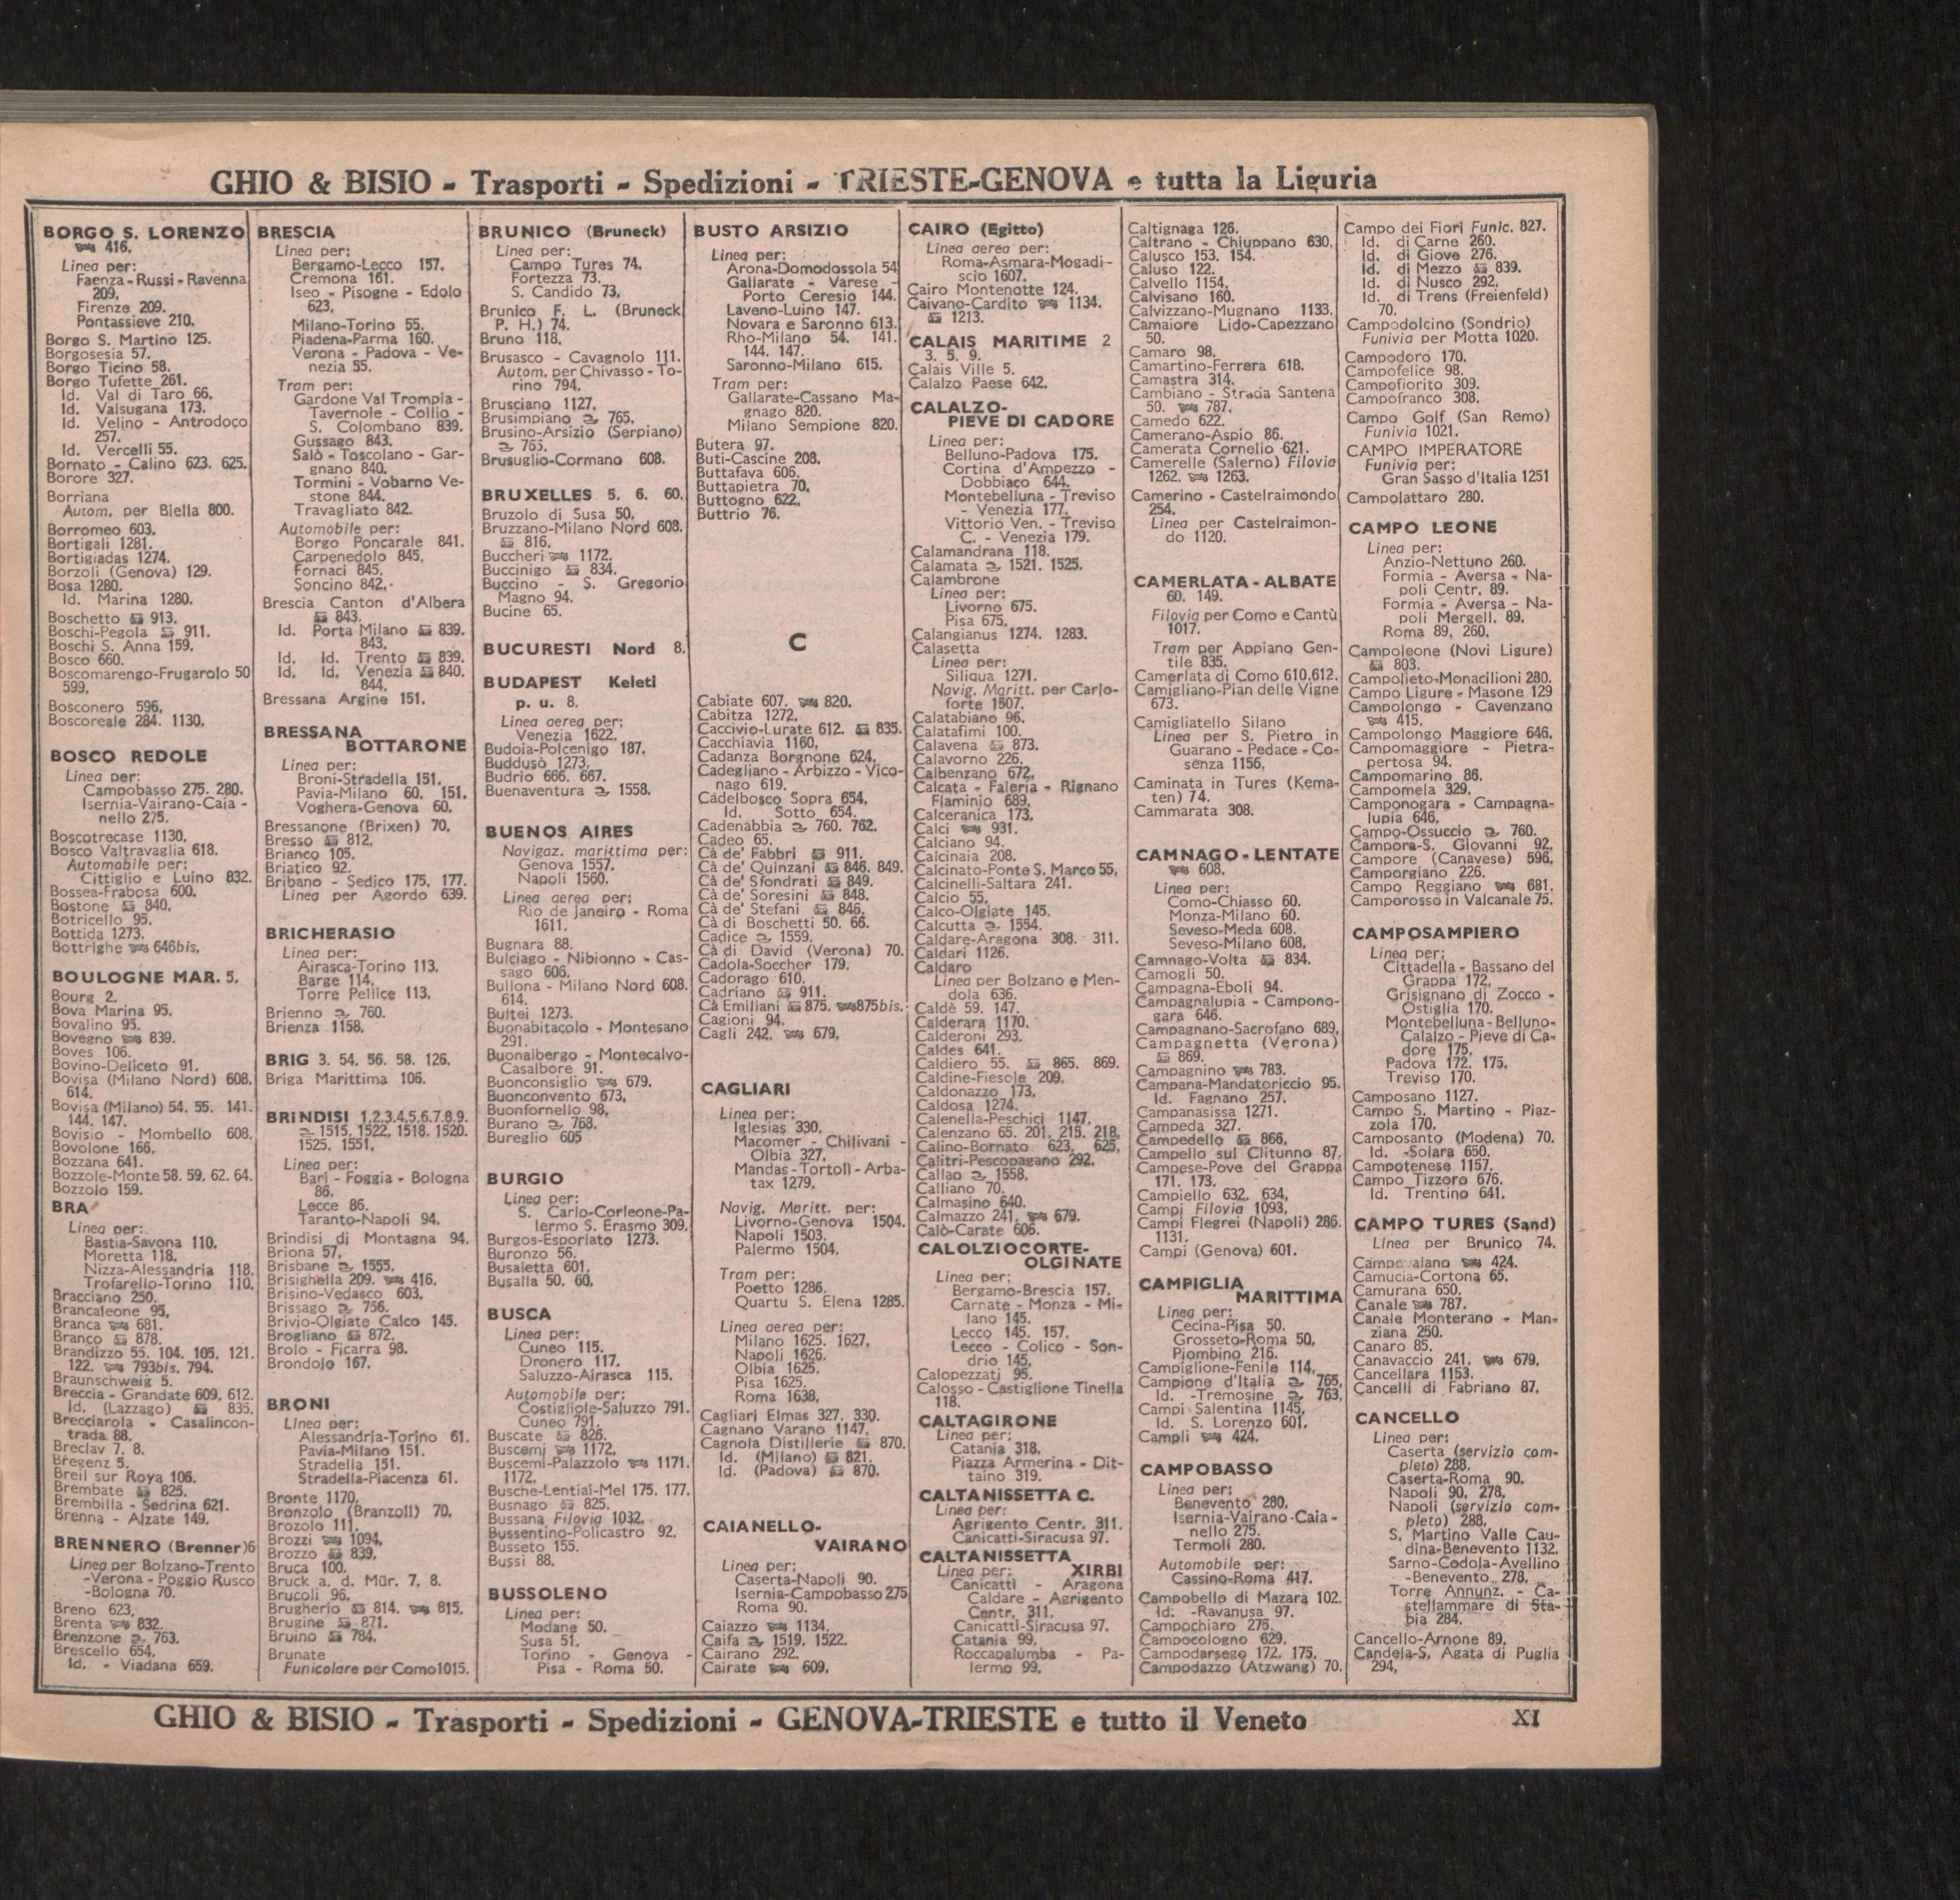 GHIO & BISIO - Trasporti - Spedizioni - TRIESTE-GENOVA e tutta la Liguria
BORGO S. LORENZO
416.
Linea per:
Faenza - Russi - Ravenna
209.
Firenze 209.
Pontassieve 210.
Borgo S. Martino 125.
Borgosesia 57.
Borgo Ticino 58.
Borgo Tufette 261.
Id. Val di Taro 66.
Id. Valsugana 173.
Id. Velino - Antrodoco
257.
Id. Vercelli 55.
Bornato - Calino 623. 625.
Borore 327.
Borriana
Autom. per Biella 800.
Borromeo 603.
Bortigali 1281.
Bortigiadas 1274.
Borzoli (Genova) 129.
Bosa 1280.
Id. Marina 1280.
Boschetto 913.
Boschi-Pegola 911.
Boschi S. Anna 159.
Bosco 660.
Boscomarengo-Frugarolo 50
599.
Bosconero 596.
Boscoreale 284. 1130.
BOSCO REDOLE
Linea per:
Campobasso 275. 280.
Isernia-Vairano-Caia-
nello 275.
Boscotrecase 1130.
Bosco Valtravaglia 618.
Automobile per:
Cittiglio e Luino 832.
Bossea-Frabosa 600.
Bostone 840.
Botricello 95.
Bottida 1273.
Bottrighe 646bis.
BOULOGNE MAR. 5.
Bourg 2.
Bova Marina 95.
Bovalino 95.
Bovegno 839.
Boves 106.
Bovino-Deliceto 91.
Bovisa (Milano Nord) 608.
614.
Bovisa (Milano) 54. 55. 141.
144. 147.
Bovisio - Mombello 608.
Bovolone 166.
Bozzana 641.
Bozzole-Monte 58. 59. 62. 64.
Bozzolo 159.
BRA
Linea per:
Bastia-Savona 110.
Moretta 118.
Nizza-Alessandria 118.
Trofarello-Torino 110.
Bracciano 250.
Brancaleone 95.
Branca 681.
Branco 878.
Brandizzo 55. 104. 105. 121.
122. 793bis. 794.
Braunschweig 5.
Breccia - Grandate 609. 612.
Id. (Lazzago) 835.
Brecciarola - Casalincon-
trada 88.
Breclav 7. 8.
Bregenz 5.
Breil sur Roya 106.
Brembate 825.
Brembilla - Sedrina 621.
Brenna - Alzate 149.
BRENNERO (Brenner)6
Linea per Bolzano-Trento
-Verona - Poggio Rusco
-Bologna 70.
Breno 623.
Brenta 832.
Brenzone 763.
Brescello 654.
Id. - Viadana 659.
BRESCIA
Linea per:
Bergamo-Lecco 157.
Cremona 161.
Iseo - Pisogne - Edolo
623.
Milano-Torino 55.
Piadena-Parma 160.
Verona - Padova - Ve-
nezia 55.
Tram per:
Gardone Val Trompia -
Tavernole - Collio -
S. Colombano 839.
Gussago 843.
Salò - Toscolano - Gar-
gnano 840.
Tormini - Vobarno Ve-
stone 844.
Travagliato 842.
Automobile per:
Borgo Poncarale 841.
Carpenedolo 845.
Fornaci 845.
Soncino 842.
Brescia Canton d'Albera
843.
Id. Porta Milano 839.
843.
Id. Id. Trento 839.
Id. Id. Venezia 840.
844.
Bressana Argine 151.
BRESSANA
BOTTARONE
Linea per:
Broni-Stradella 151.
Pavia-Milano 60. 151.
Voghera-Genova 60.
Bressanone (Brixen) 70.
Bresso 812.
Brianco 105.
Briatico 92.
Bribano - Sedico 175. 177.
Linea per Agordo 639.
BRICHERASIO
Linea per:
Airasca-Torino 113.
Barge 114.
Torre Pellice 113.
Brienno 760.
Brienza 1158.
BRIG 3. 54. 56. 58. 126.
Briga Marittima 106.
BRINDISI 1.2.3.4.5.6.7.8.9.
1515. 1522. 1518. 1520.
1525. 1551.
Linea per:
Bari - Foggia - Bologna
86.
Lecce 86.
Taranto-Napoli 94.
Brindisi di Montagna 94.
Briona 57.
Brisbane 1555.
Brisighella 209. 416.
Brisino-Vedasco 603.
Brissago 756.
Brivio-Olgiate Calco 145.
Brogliano 872.
Brolo - Ficarra 98.
Brondolo 167.
BRONI
Linea per:
Alessandria-Torino 61.
Pavia-Milano 151.
Stradella 151.
Stradella-Piacenza 61.
Bronte 1170.
Bronzolo (Branzoll) 70.
Brozolo 111.
Brozzi 1094.
Brozzo 839.
Bruca 100.
Bruck a. d. Mür. 7. 8.
Brucoli 96.
Brugherio 814. 815.
Brugine 871.
Bruino 784.
Brunate
Funicolare per Como1015.
BRUNICO (Bruneck)
Linea per:
Campo Tures 74.
Fortezza 73.
S. Candido 73.
Brunico F. L. (Bruneck
P. H.) 74.
Bruno 118.
Brusasco - Cavagnolo 111.
Autom. per Chivasso - To-
rino 794.
Brusciano 1127.
Brusimpiano 765.
Brusino-Arsizio (Serpiano)
765.
Brusuglio-Cormano 608.
BRUXELLES 5. 6. 60.
Bruzolo di Susa 50.
Bruzzano-Milano Nord 608.
816.
Buccheri 1172.
Buccinigo 834.
Buccino - S. Gregorio
Magno 94.
Bucine 65.
BUCURESTI Nord 8.
BUDAPEST Keleti
p. u. 8.
Linea aerea per:
Venezia 1622.
Budoia-Polcenigo 187.
Buddusò 1273.
Budrio 666. 667.
Buenaventura 1558.
BUENOS AIRES
Navigaz. marittima per:
Genova 1557.
Napoli 1560.
Linea aerea per:
Rio de Janeiro - Roma
1611.
Bugnara 88.
Bulciago - Nibionno - Cas-
sago 606.
Bullona - Milano Nord 608.
614.
Bultei 1273.
Buonabitacolo - Montesano
291.
Buonalbergo - Montecalvo-
Casalbore 91.
Buonconsiglio 679.
Buonconvento 673.
Buonfornello 98.
Burano 768.
Bureglio 605
BURGIO
Linea per:
S. Carlo-Corleone-Pa-
lermo S. Erasmo 309.
Burgos-Esporlato 1273.
Buronzo 56.
Busaletta 601.
Busalla 50. 60.
BUSCA
Linea per:
Cuneo 115.
Dronero 117.
Saluzzo-Airasca 115.
Automobile per:
Costigliole-Saluzzo 791.
Cuneo 791.
Buscate 826.
Buscemi 1172.
Buscemi-Palazzolo 1171.
1172.
Busche-Lentiai-Mel 175. 177.
Busnago 825.
Bussana Filovia 1032.
Bussentino-Policastro 92.
Busseto 155.
Bussi 88.
BUSSOLENO
Linea per:
Modane 50.
Susa 51.
Torino - Genova -
Pisa - Roma 50.
BUSTO ARSIZIO
Linea per:
Arona-Domodossola 54
Gallarate - Varese -
Porto Ceresio 144.
Laveno-Luino 147.
Novara e Saronno 613.
Rho-Milano 54. 141.
144. 147.
Saronno-Milano 615.
Tram per:
Gallarate-Cassano Ma-
gnago 820.
Milano Sempione 820.
Butera 97.
Buti-Cascine 208.
Buttafava 606.
Buttapietra 70.
Buttogno 622.
Buttrio 76.
C
Cabiate 607. 820.
Cabitza 1272.
Caccivio-Lurate 612. 835.
Cacchiavia 1160.
Cadanza Borgnone 624.
Cadegliano - Arbizzo - Vico-
nago 619.
Cadelbosco Sopra 654.
Id. Sotto 654.
Cadenabbia 760. 762.
Cadeo 65.
Cà de' Fabbri 911.
Cà de' Quinzani 846. 849.
Cà de' Sfondrati 849.
Cà de' Soresini 848.
Cà de' Stefani 846.
Cà di Boschetti 50. 66.
Cadice 1559.
Cà di David (Verona) 70.
Cadola-Soccher 179.
Cadorago 610.
Cadriano 911.
Cà Emiliani 875. 875bis.
Cagioni 94.
Cagli 242. 679.
CAGLIARI
Linea per:
Iglesias 330.
Macomer - Chilivani -
Olbia 327.
Mandas-Tortolì-Arba-
tax 1279.
Navig. Maritt. per:
Livorno-Genova 1504.
Napoli 1503.
Palermo 1504.
Tram per:
Poetto 1286.
Quartu S. Elena 1285.
Linea aerea per:
Milano 1625. 1627.
Napoli 1626.
Olbia 1625.
Pisa 1625.
Roma 1638.
Cagliari Elmas 327. 330.
Cagnano Varano 1147.
Cagnola Distillerie 870.
Id. (Milano) 821.
Id. (Padova) 870.
CAIANELLO-
VAIRANO
Linea per:
Caserta-Napoli 90.
Isernia-Campobasso 275
Roma 90.
Caiazzo 1134.
Caifa 1519. 1522.
Cairano 292.
Cairate 609.
CAIRO (Egitto)
Linea aerea per:
Roma-Asmara-Mogadi-
scio 1607.
Cairo Montenotte 124.
Caivano-Cardito 1134.
1213.
CALAIS MARITIME 2
3. 5. 9.
Calais Ville 5.
Calalzo Paese 642.
CALALZO-
PIEVE DI CADORE
Linea per:
Belluno-Padova 175.
Cortina d'Ampezzo -
Dobbiaco 644.
Montebelluna - Treviso
- Venezia 177.
Vittorio Ven. - Treviso
C. - Venezia 179.
Calamandrana 118.
Calamata 1521. 1525.
Calambrone
Linea per:
Livorno 675.
Pisa 675.
Calangianus 1274. 1283.
Calasetta
Linea per:
Siliqua 1271.
Navig. Maritt. per Carlo-
forte 1507.
Calatabiano 96.
Calatafimi 100.
Calavena 873.
Calavorno 226.
Calbenzano 672.
Calcata - Faleria - Rignano
Flaminio 689.
Calceranica 173.
Calci 931.
Calciano 94.
Calcinaia 208.
Calcinato-Ponte S. Marco 55.
Calcinelli-Saltara 241.
Calcio 55.
Calco-Olgiate 145.
Calcutta 1554.
Caldare-Aragona 308. 311.
Caldari 1126.
Caldaro
Linea per Bolzano e Men-
dola 636.
Caldè 59. 147.
Calderara 1170.
Calderoni 293.
Caldes 641.
Caldiero 55. 865. 869.
Caldine-Fiesole 209.
Caldonazzo 173.
Caldosa 1274.
Calenella-Peschici 1147.
Calenzano 65. 201. 215. 218.
Calino-Bornato 623. 625.
Calitri-Pescopagano 292.
Callao 1558.
Calliano 70.
Calmasino 640.
Calmazzo 241. 679.
Calò-Carate 606.
CALOLZIOCORTE-
OLGINATE
Linea per:
Bergamo-Brescia 157.
Carnate - Monza - Mi-
lano 145.
Lecco 145. 157.
Lecco - Colico - Son-
drio 145.
Calopezzati 95.
Calosso - Castiglione Tinella
118.
CALTAGIRONE
Linea per:
Catania 318.
Piazza Armerina - Dit-
taino 319.
CALTANISSETTA C.
Linea per:
Agrigento Centr. 311.
Canicattì-Siracusa 97.
CALTANISSETTA
XIRBI
Linea per:
Canicattì - Aragona
Caldare - Agrigento
Centr. 311.
Canicattì-Siracusa 97.
Catania 99.
Roccapalumba - Pa-
lermo 99.
Caltignaga 126.
Caltrano - Chiuppano 630.
Calusco 153. 154.
Caluso 122.
Calvello 1154.
Calvisano 160.
Calvizzano-Mugnano 1133.
Camaiore Lido-Capezzano
50.
Camaro 98.
Camartino-Ferrera 618.
Camastra 314.
Cambiano - Strada Santena
50. 787.
Camedo 622.
Camerano-Aspio 86.
Camerata Cornello 621.
Camerelle (Salerno) Filovia
1262. 1263.
Camerino - Castelraimondo
254.
Linea per Castelraimon-
do 1120.
CAMERLATA - ALBATE
60. 149.
Filovia per Como e Cantù
1017.
Tram per Appiano Gen-
tile 835.
Camerlata di Como 610.612.
Camigliano-Pian delle Vigne
673.
Camigliatello Silano
Linea per S. Pietro in
Guarano - Pedace - Co-
senza 1156.
Caminata in Tures (Kema-
ten) 74.
Cammarata 308.
CAMNAGO - LENTATE
608.
Linea per:
Como-Chiasso 60.
Monza-Milano 60.
Seveso-Meda 608.
Seveso-Milano 608.
Camnago-Volta 834.
Camogli 50.
Campagna-Eboli 94.
Campagnalupia - Campono-
gara 646.
Campagnano-Sacrofano 689.
Campagnetta (Verona)
869.
Campagnino 783.
Campana-Mandatoriccio 95.
Id. Fagnano 257.
Campanasissa 1271.
Campeda 327.
Campedello 866.
Campello sul Clitunno 87.
Campese-Pove del Grappa
171. 173.
Campiello 632. 634.
Campi Filovia 1093.
Campi Flegrei (Napoli) 286.
1131.
Campi (Genova) 601.
CAMPIGLIA
MARITTIMA
Linea per:
Cecina-Pisa 50.
Grosseto-Roma 50.
Piombino 216.
Campiglione-Fenile 114.
Campione d'Italia 765.
Id. -Tremosine 763.
Campi Salentina 1145.
Id. S. Lorenzo 601.
Campli 424.
CAMPOBASSO
Linea per:
Benevento 280.
Isernia-Vairano-Caia-
nello 275.
Termoli 280.
Automobile per:
Cassino-Roma 417.
Campobello di Mazara 102.
Id. -Ravanusa 97.
Campochiaro 275.
Campocologno 629.
Campodarsego 172. 175.
Campodazzo (Atzwang) 70.
Campo dei Fiori Funic. 827.
Id. di Carne 260.
Id. di Giove 276.
Id. di Mezzo 839.
Id. di Nusco 292.
Id. di Trens (Freienfeld)
70.
Campodolcino (Sondrio)
Funivia per Motta 1020.
Campodoro 170.
Campofelice 98.
Campofiorito 309.
Campofranco 308.
Campo Golf (San Remo)
Funivia 1021.
CAMPO IMPERATORE
Funivia per:
Gran Sasso d'Italia 1251
Campolattaro 280.
CAMPO LEONE
Linea per:
Anzio-Nettuno 260.
Formia - Aversa - Na-
poli Centr. 89.
Formia - Aversa - Na-
poli Mergell. 89.
Roma 89. 260.
Campoleone (Novi Ligure)
803.
Campolieto-Monacilioni 280.
Campo Ligure - Masone 129
Campolongo - Cavenzano
415.
Campolongo Maggiore 646.
Campomaggiore - Pietra-
pertosa 94.
Campomarino 86.
Campomela 329.
Camponogara - Campagna-
lupia 646.
Campo-Ossuccio 760.
Campora-S. Giovanni 92.
Campore (Canavese) 596.
Camporgiano 226.
Campo Reggiano 681.
Camporosso in Valcanale 75.
CAMPOSAMPIERO
Linea per:
Cittadella - Bassano del
Grappa 172.
Grisignano di Zocco -
Ostiglia 170.
Montebelluna-Belluno-
Calalzo - Pieve di Ca-
dore 175.
Padova 172. 175.
Treviso 170.
Camposano 1127.
Campo S. Martino - Piaz-
zola 170.
Camposanto (Modena) 70.
Id. -Solara 650.
Campotenese 1157.
Campo Tizzoro 676.
Id. Trentino 641.
CAMPO TURES (Sand)
Linea per Brunico 74.
424.
Camucia-Cortona 65.
Camurana 650.
Canale 787.
Canale Monterano - Man-
ziana 250.
Canaro 85.
Canavaccio 241. 679.
Cancellara 1153.
Cancelli di Fabriano 87.
CANCELLO
Linea per:
Caserta (servizio com-
pleto) 288.
Caserta-Roma 90.
Napoli 90. 278.
Napoli (servizio com-
pleto) 288.
S. Martino Valle Cau-
dina-Benevento 1132.
Sarno-Codola-Avellino
-Benevento 278.
Torre Annunz. - Ca-
stellammare di Sta-
bia 284.
Cancello-Arnone 89.
Candela-S. Agata di Puglia
294.
GHIO & BISIO - Trasporti - Spedizioni - GENOVA-TRIESTE e tutto il Veneto
XI